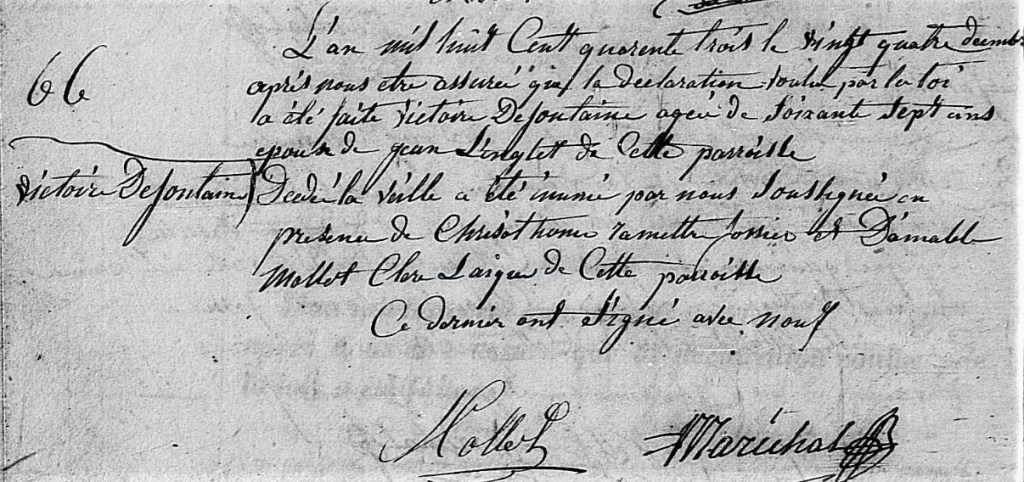 L'an mil huit Cent quarente trois le vingt quatre décemb
après nous etre assuréé que la declaration voulu par la loi
66
a été faite victoire Defontaine ageé de soixante sept ans
epouse de jean Linglet de Cette parroisse
victoire Defontaine
Decdé la veille a été inumé par nous soussignée en
presence de Chrisothome ramette fossier et D'amable
Mollet Clerc Laique de Cette parroisse
Ce dernier ont signé avec nous
Mollet
Maréchal